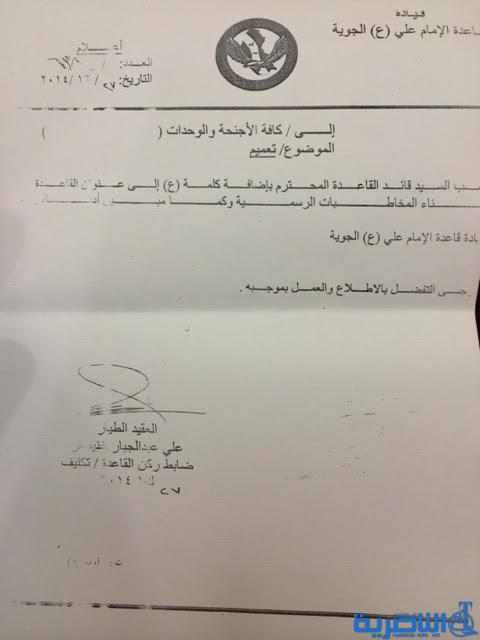 قيادة
قاعدة الإمام علي (ع) الجوية
أعـــلام
العـدد:
التاريخ: ٢٧/١٢/٢٠١٤
إلــى / كافة الأجنحة والوحدات ( )
الموضوع/ تعميم
السيد قائد القاعدة المحترم بإضافة كلمة (ع) إلى عنوان القاعدة
المخاطبات الرسمية وكما مبين أدناه
قاعدة الإمام علي (ع) الجوية
التفضل بالاطلاع والعمل بموجبه .
العقيد الطيار
علي عبدالجبار
ضابط ركن القاعدة / تكليف
٢٧ ك١ ٢٠١٤
الناصرية